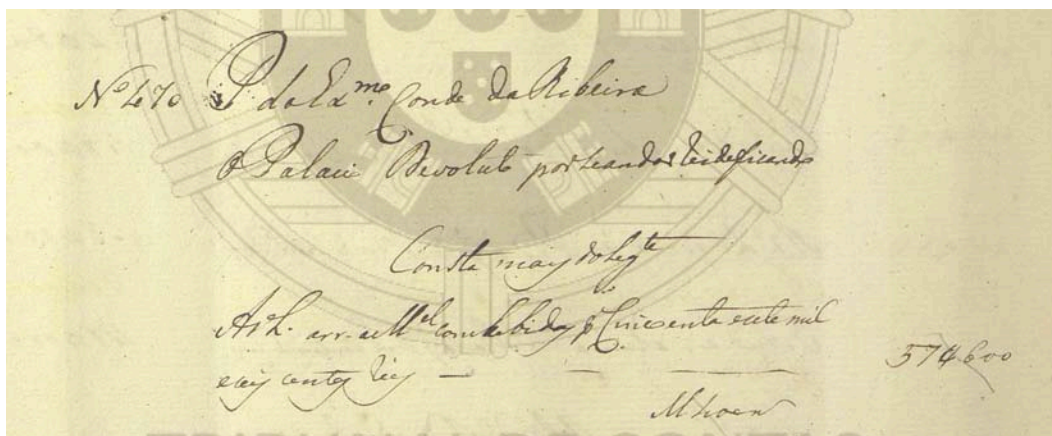 Nº 470 P. do Exmo. Conde da Ribeira
O Palacio Devoluto por se andar reideficando
Consta mais do segte
arr. a Mel com de bidas p Cincoenta e sete mil
e seis centos reis — — —
57$600